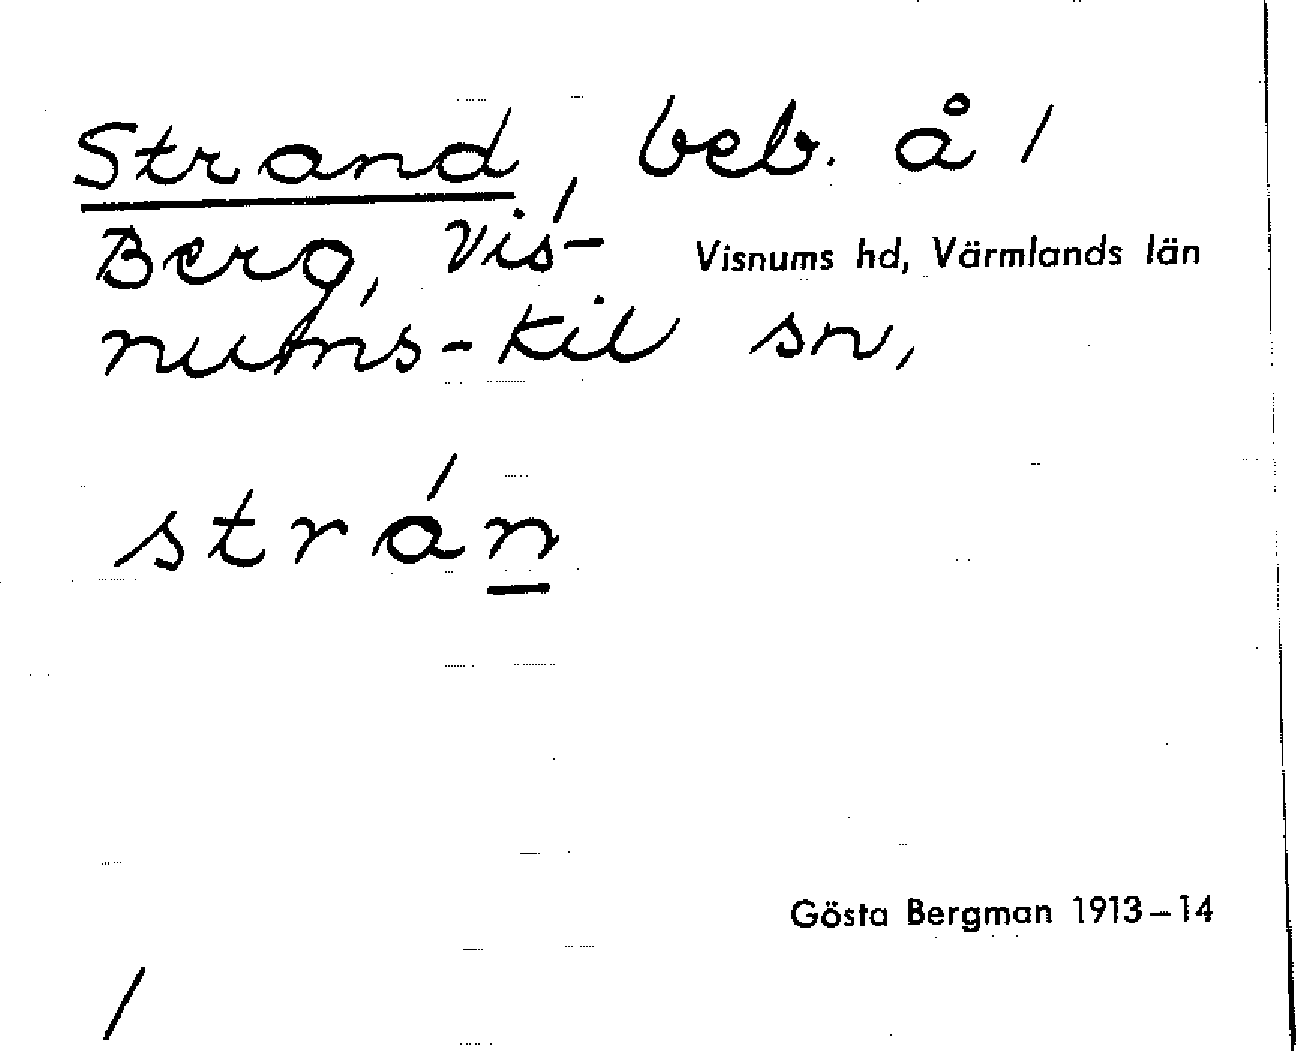 Strand, beb. å /
Berg, Vis-
Visnums hd, Värmlands län
nums-Kil sn,
strán
Gösta Bergman 1913–14
/